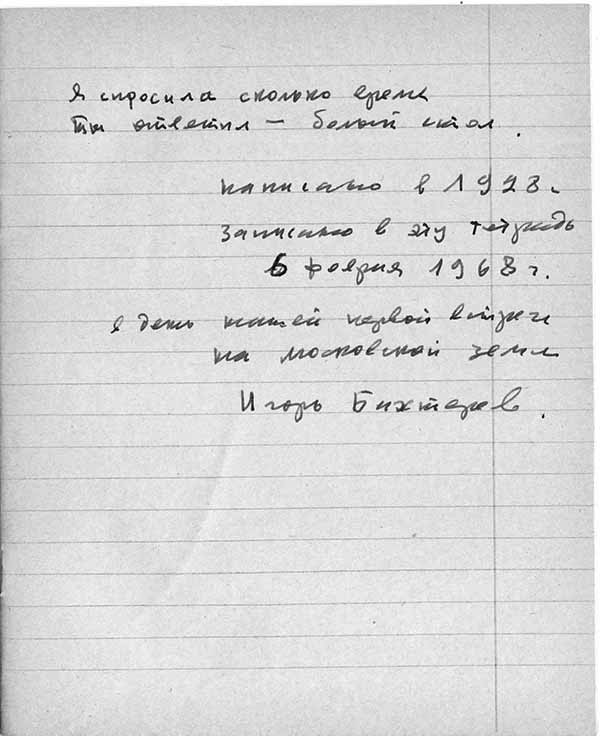 Я спросила сколько время
Ты ответил – белый стол.
написано в 1928 г.
записано в эту тетрадь
6 февраля 1968 г.
в день нашей первой встречи
на московской земле
Игорь Бахтерев.